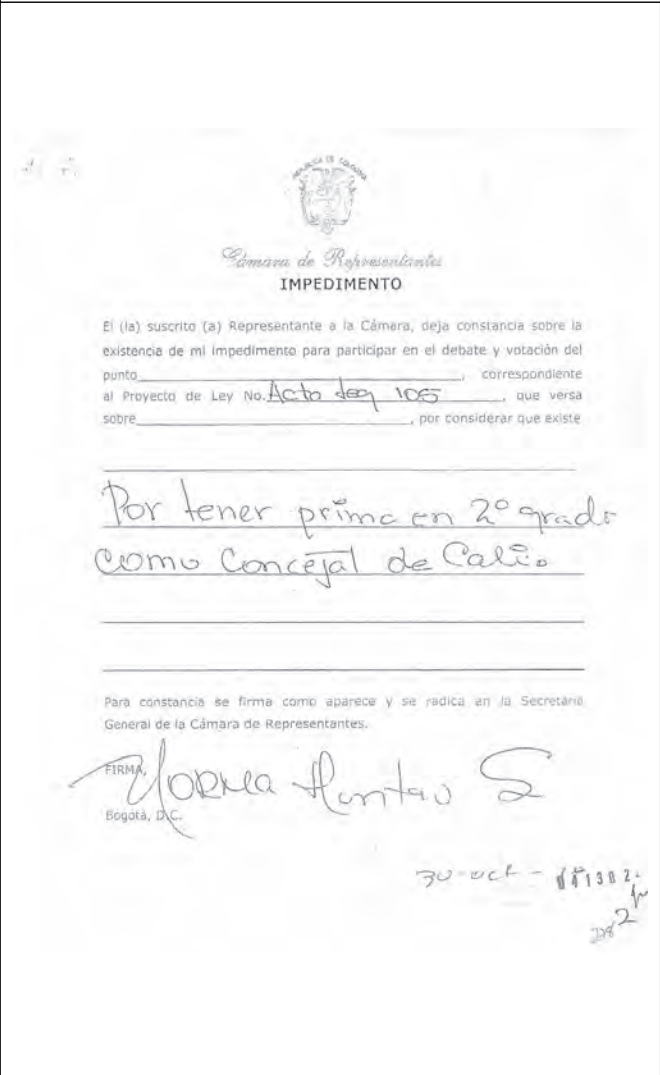 REPUBLICA DE COLOMBIA
Cámara de Representantes
IMPEDIMENTO
El (la) suscrito (a) Representante a la Cámara, deja constancia sobre la
existencia de mi impedimento para participar en el debate y votación del
punto____________, correspondiente
al Proyecto de Ley No. Acto Leg 105, que versa
sobre____________, por considerar que existe
Por tener prima en 2º grado
como Concejal de Cali.
Para constancia se firma como aparece y se radica en la Secretaría
General de la Cámara de Representantes.
FIRMA,
Norma Hurtado S
Bogotá, D.C.
30-oct-